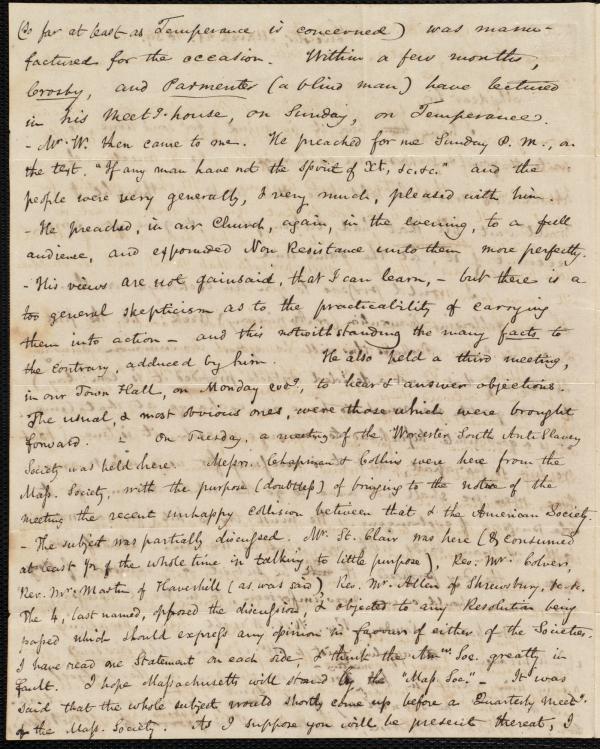 (so far at least as Temperance is concerned) was manu-
factured for the occasion. Within a few months,
Crosby, and Parmenter (a blind man) have lectured
in his meetg. house, on Sunday, on Temperance.
- Mr. W. then came to me. He preached for me Sunday P. M., on
the text. "If any man have not the Spirit of Xt, &c. &c." and the
people were very generally, & very much, pleased with him.
- He preached, in our Church, again, in the evening, to a full
audience, and expounded Non Resistance unto them more perfectly.
- His views are not gainsaid, that I can learn, - but there is a
too general skepticism as to the practicability of carrying
them into action - and this notwithstanding the many facts to
the contrary, adduced by him. He also held a third meeting,
in our Town Hall, on Monday eveg., to hear & answer objections.
The usual, & most obvious ones, were those which were brought
forward. - On Tuesday, a meeting of the Worcester South Anti Slavery
Society was held here. Messrs. Chapman & Collins were here from the
Mass. Society, with the purpose (doubtless) of bringing to the notice of the
meeting the recent unhappy collision between that & the American Society.
- The subject was partially discussed. Mr. St. Clair was here (& consumed
at least of the whole time in talking, to little purpose), Rev. Mr. Colver,
Rev. Mr. Martin of Haverhill (as was said) Rev. Mr. Allen of Shrewsbury, &c. &c.
The 4, last named, opposed the discussion, & objected to any Resolution being
passed which should express any opinion in favour of either of the Societies.
I have read one Statement on each side, & think the Amn. Soc. greatly in
fault. I hope Massachusetts will stand by the "Mass. Soc." - It was
said that the whole subject would shortly come up before a Quarterly Meetg.
of the Mass. Society. As I suppose you will be present thereat, I